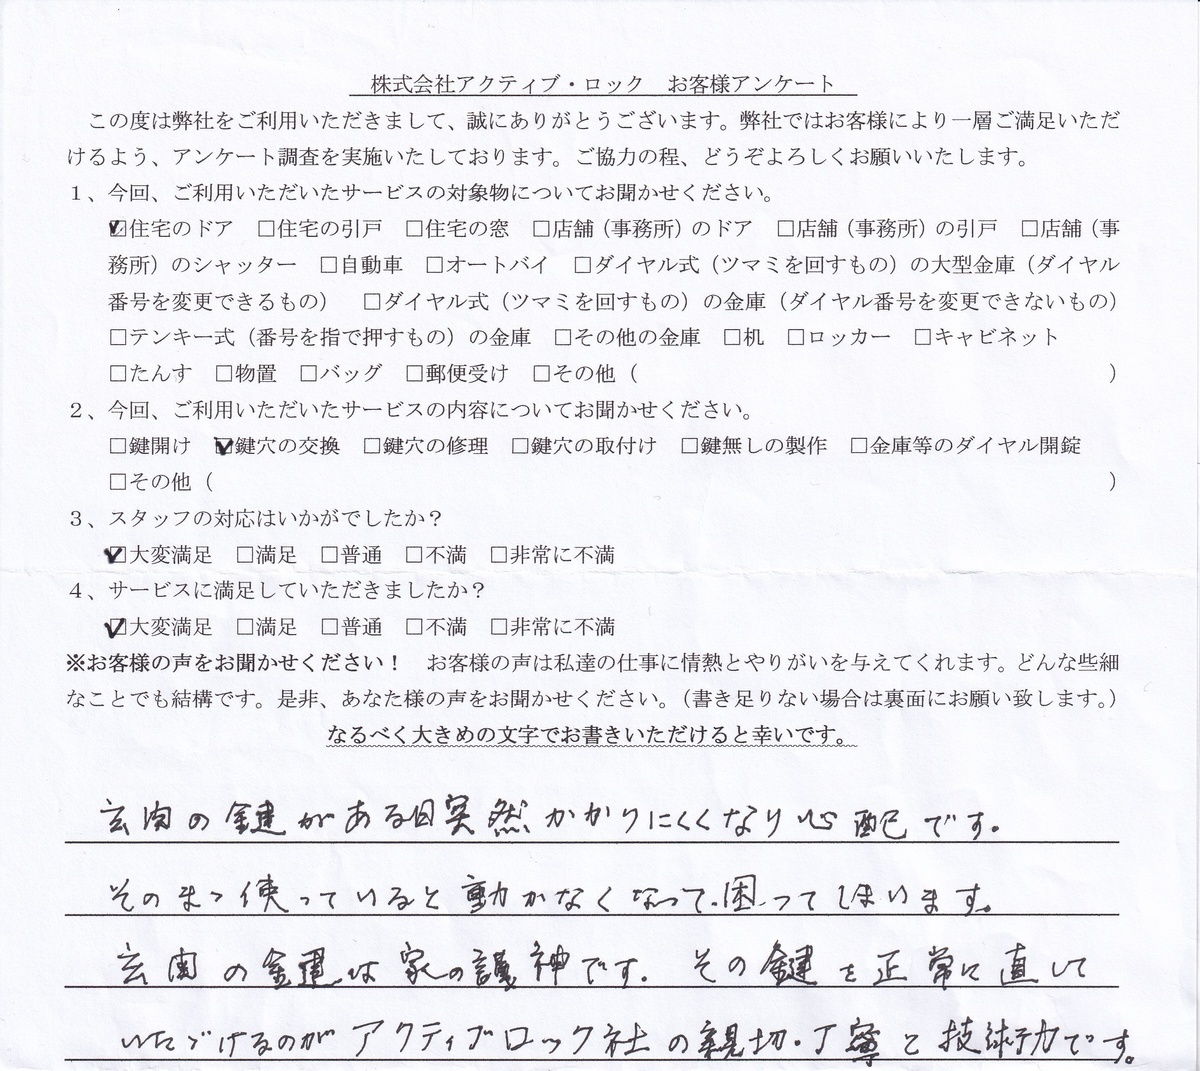 株式会社アクティブ・ロック　お客様アンケート
この度は弊社をご利用いただきまして、誠にありがとうございます。弊社ではお客様により一層ご満足いただ
けるよう、アンケート調査を実施いたしております。ご協力の程、どうぞよろしくお願いいたします。
１、今回、ご利用いただいたサービスの対象物についてお聞かせください。
☑住宅のドア　□住宅の引戸　□住宅の窓　□店舗（事務所）のドア　□店舗（事務所）の引戸　□店舗（事
務所）のシャッター　□自動車　□オートバイ　□ダイヤル式（ツマミを回すもの）の大型金庫（ダイヤル
番号を変更できるもの）　□ダイヤル式（ツマミを回すもの）の金庫（ダイヤル番号を変更できないもの）
□テンキー式（番号を指で押すもの）の金庫　□その他の金庫　□机　□ロッカー　□キャビネット
□たんす　□物置　□バッグ　□郵便受け　□その他（　　　　　　　　　　）
２、今回、ご利用いただいたサービスの内容についてお聞かせください。
□鍵開け　☑鍵穴の交換　□鍵穴の修理　□鍵穴の取付け　□鍵無しの製作　□金庫等のダイヤル開錠
□その他（　　　　　　　　　　）
３、スタッフの対応はいかがでしたか？
☑大変満足　□満足　□普通　□不満　□非常に不満
４、サービスに満足していただきましたか？
☑大変満足　□満足　□普通　□不満　□非常に不満
※お客様の声をお聞かせください！　お客様の声は私達の仕事に情熱とやりがいを与えてくれます。どんな些細
なことでも結構です。是非、あなた様の声をお聞かせください。（書き足りない場合は裏面にお願い致します。）
なるべく大きめの文字でお書きいただけると幸いです。
玄関の鍵がある日突然かかりにくくなり心配です。
そのまゝ使っていると動かなくなって困ってしまいます。
玄関の鍵は家の護神です。その鍵を正常に直して
いただけるのがアクティブロック社の親切・丁寧と技術力です。